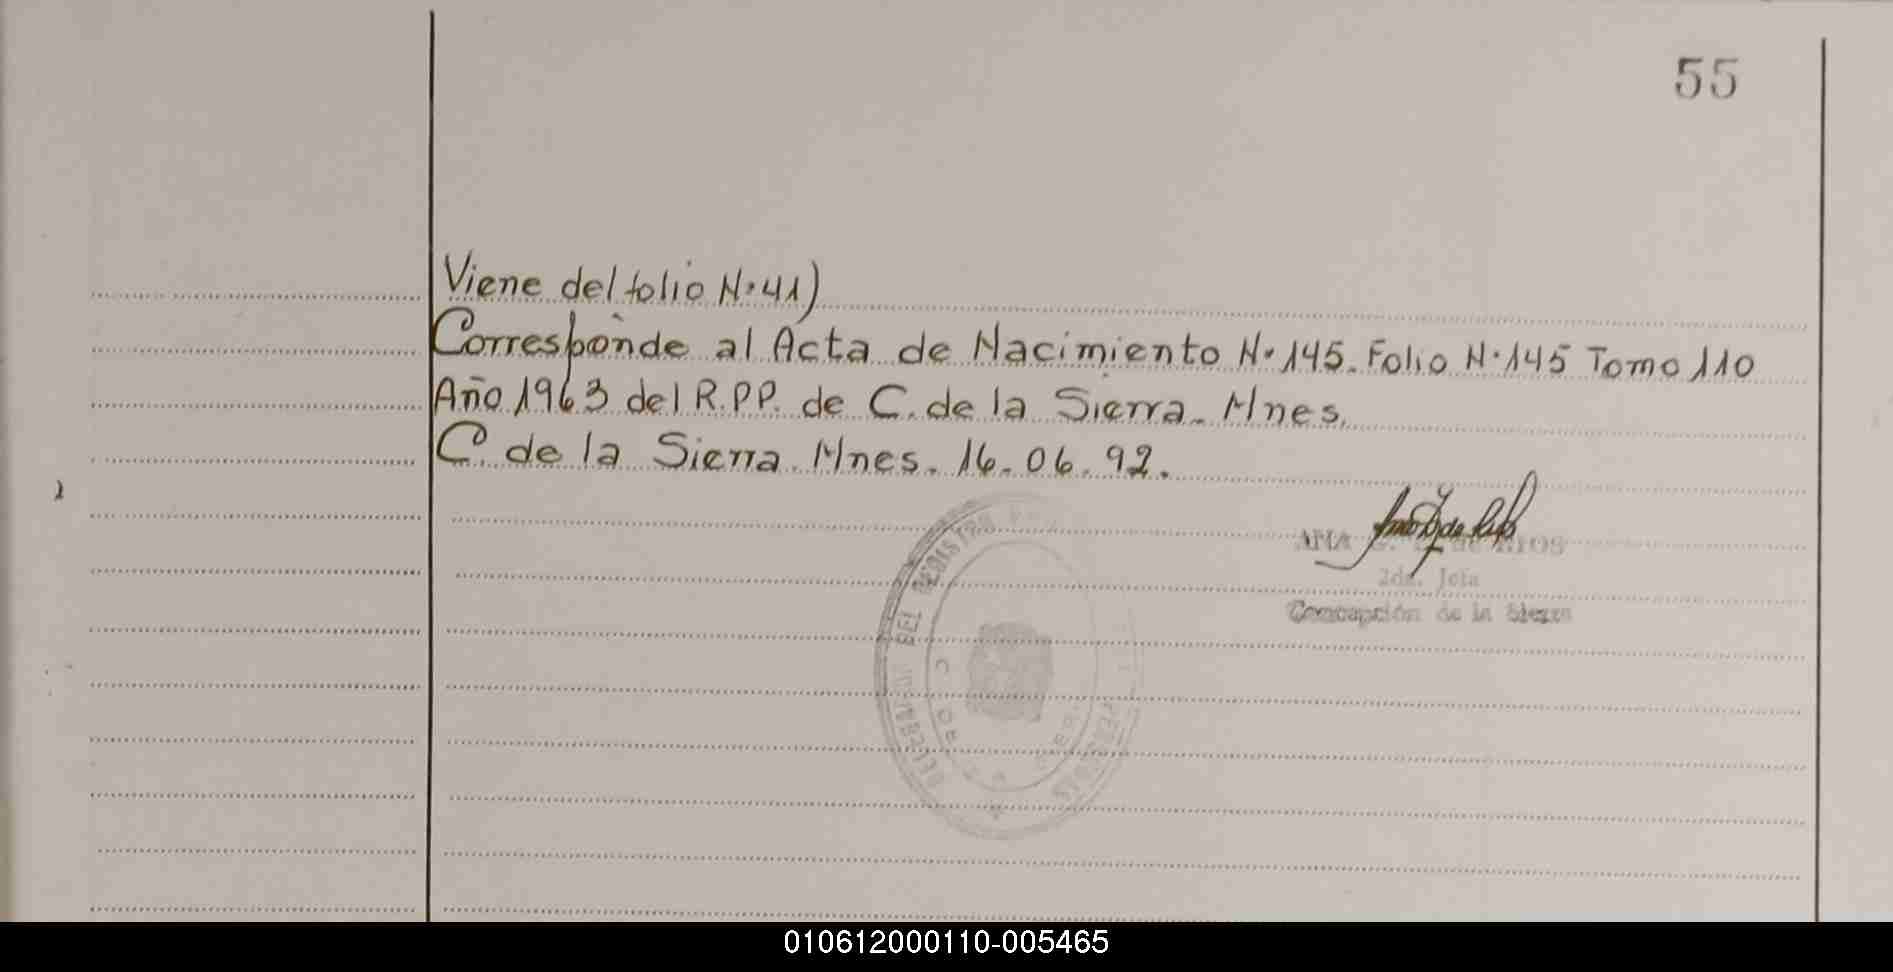 55
Viene del folio N° 41)
Corresponde al Acta de Nacimiento N° 145. Folio N° 145 Tomo 110
Año 1963 del R.P.P. de C. de la Sierra. Mnes.
C. de la Sierra. Mnes. 16. 06. 92.
ANA de RIOS
2da. Jefa
Concepción de la Sierra
DEL REGISTRO
010612000110-005465